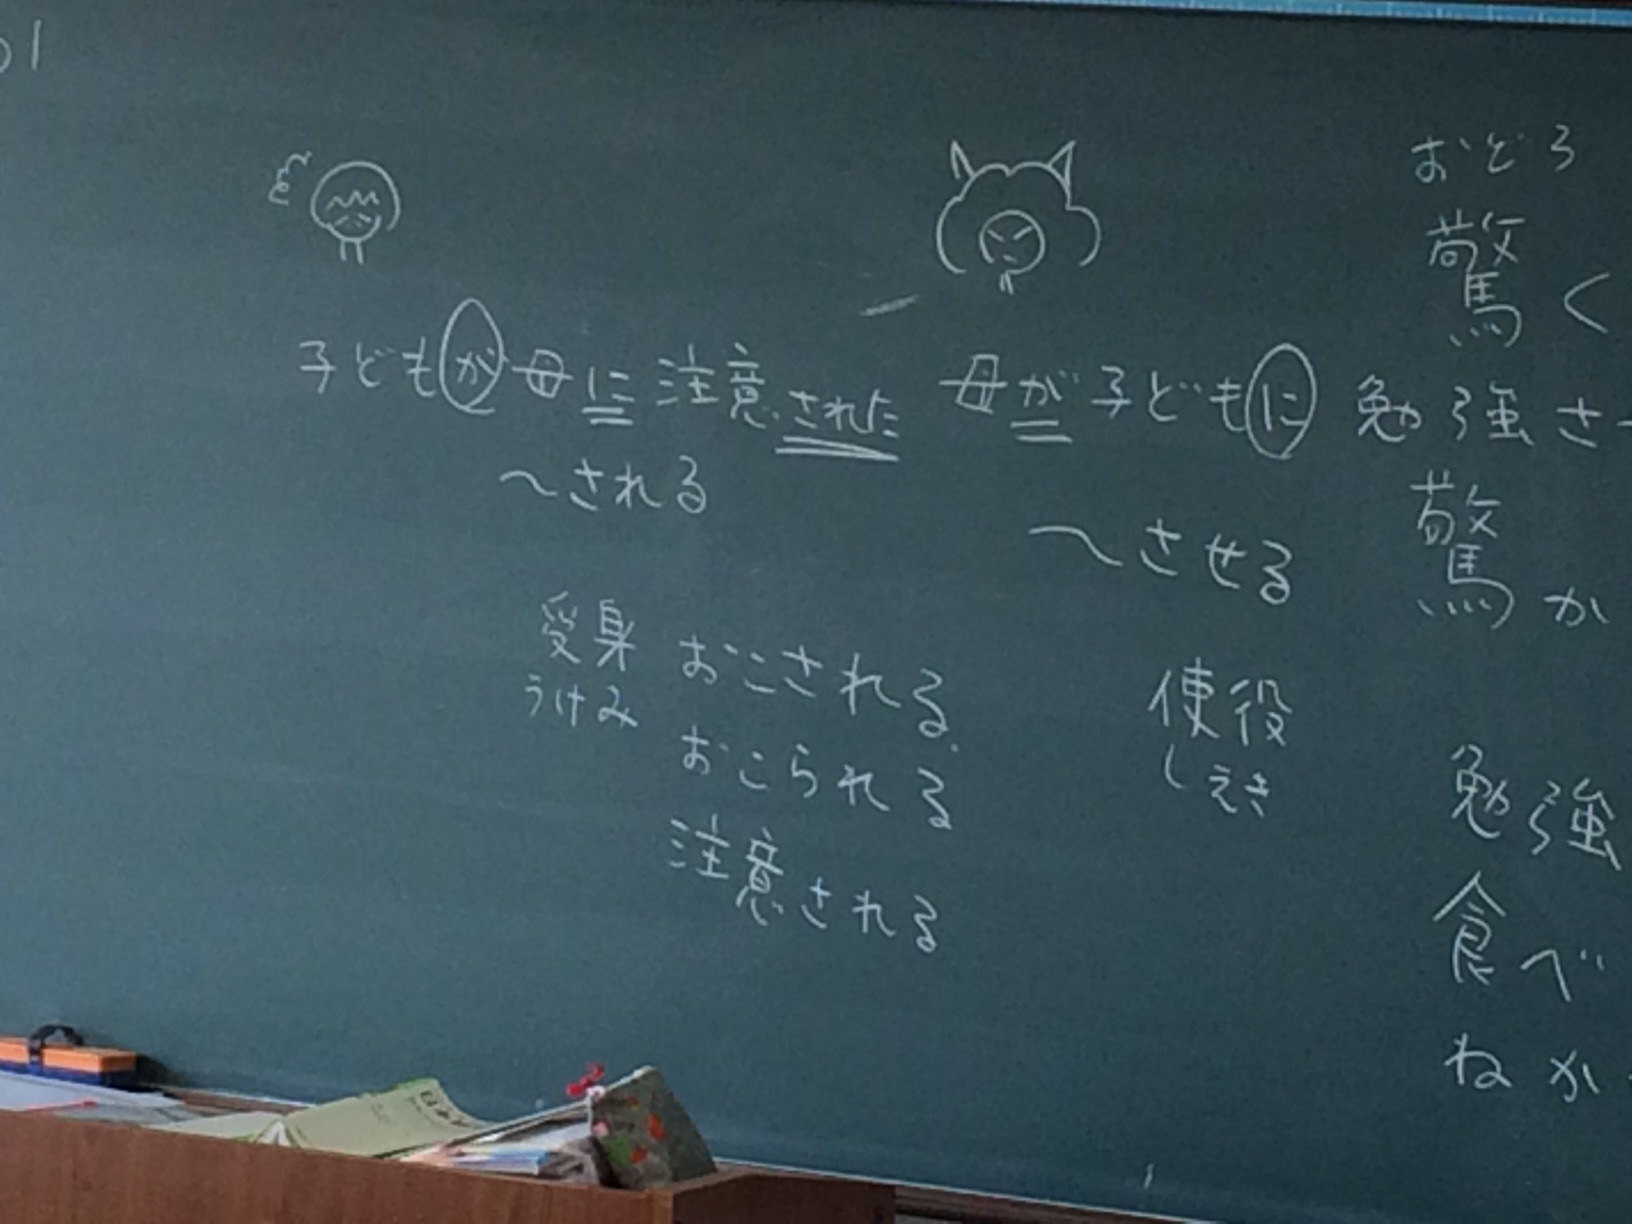 子どもが母に注意された
〜される
受身
うけみ
おこされる
おこられる
注意される
母が子どもに勉強さ
〜させる
使役
しえき
おどろ
驚く
驚か
勉強
食べ
ねか